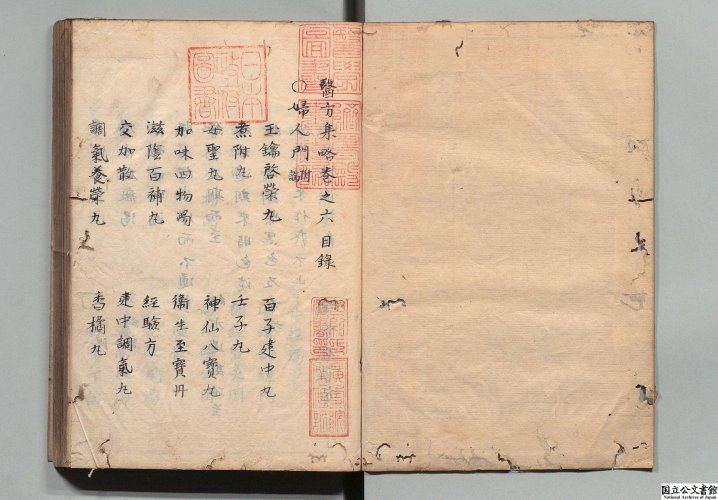 醫方集略卷之六目錄
○婦人門附論
玉鑰啓榮丸 百子建中丸
煮附丸 壬子丸
女聖丸 神仙八寶丸
加味四物湯 衛生至寶丹
滋陰百補丸 經驗方
交加散 建中調氣丸
調氣養榮丸 杏橘丸
日本政府圖書
国立公文書館
National Archives of Japan